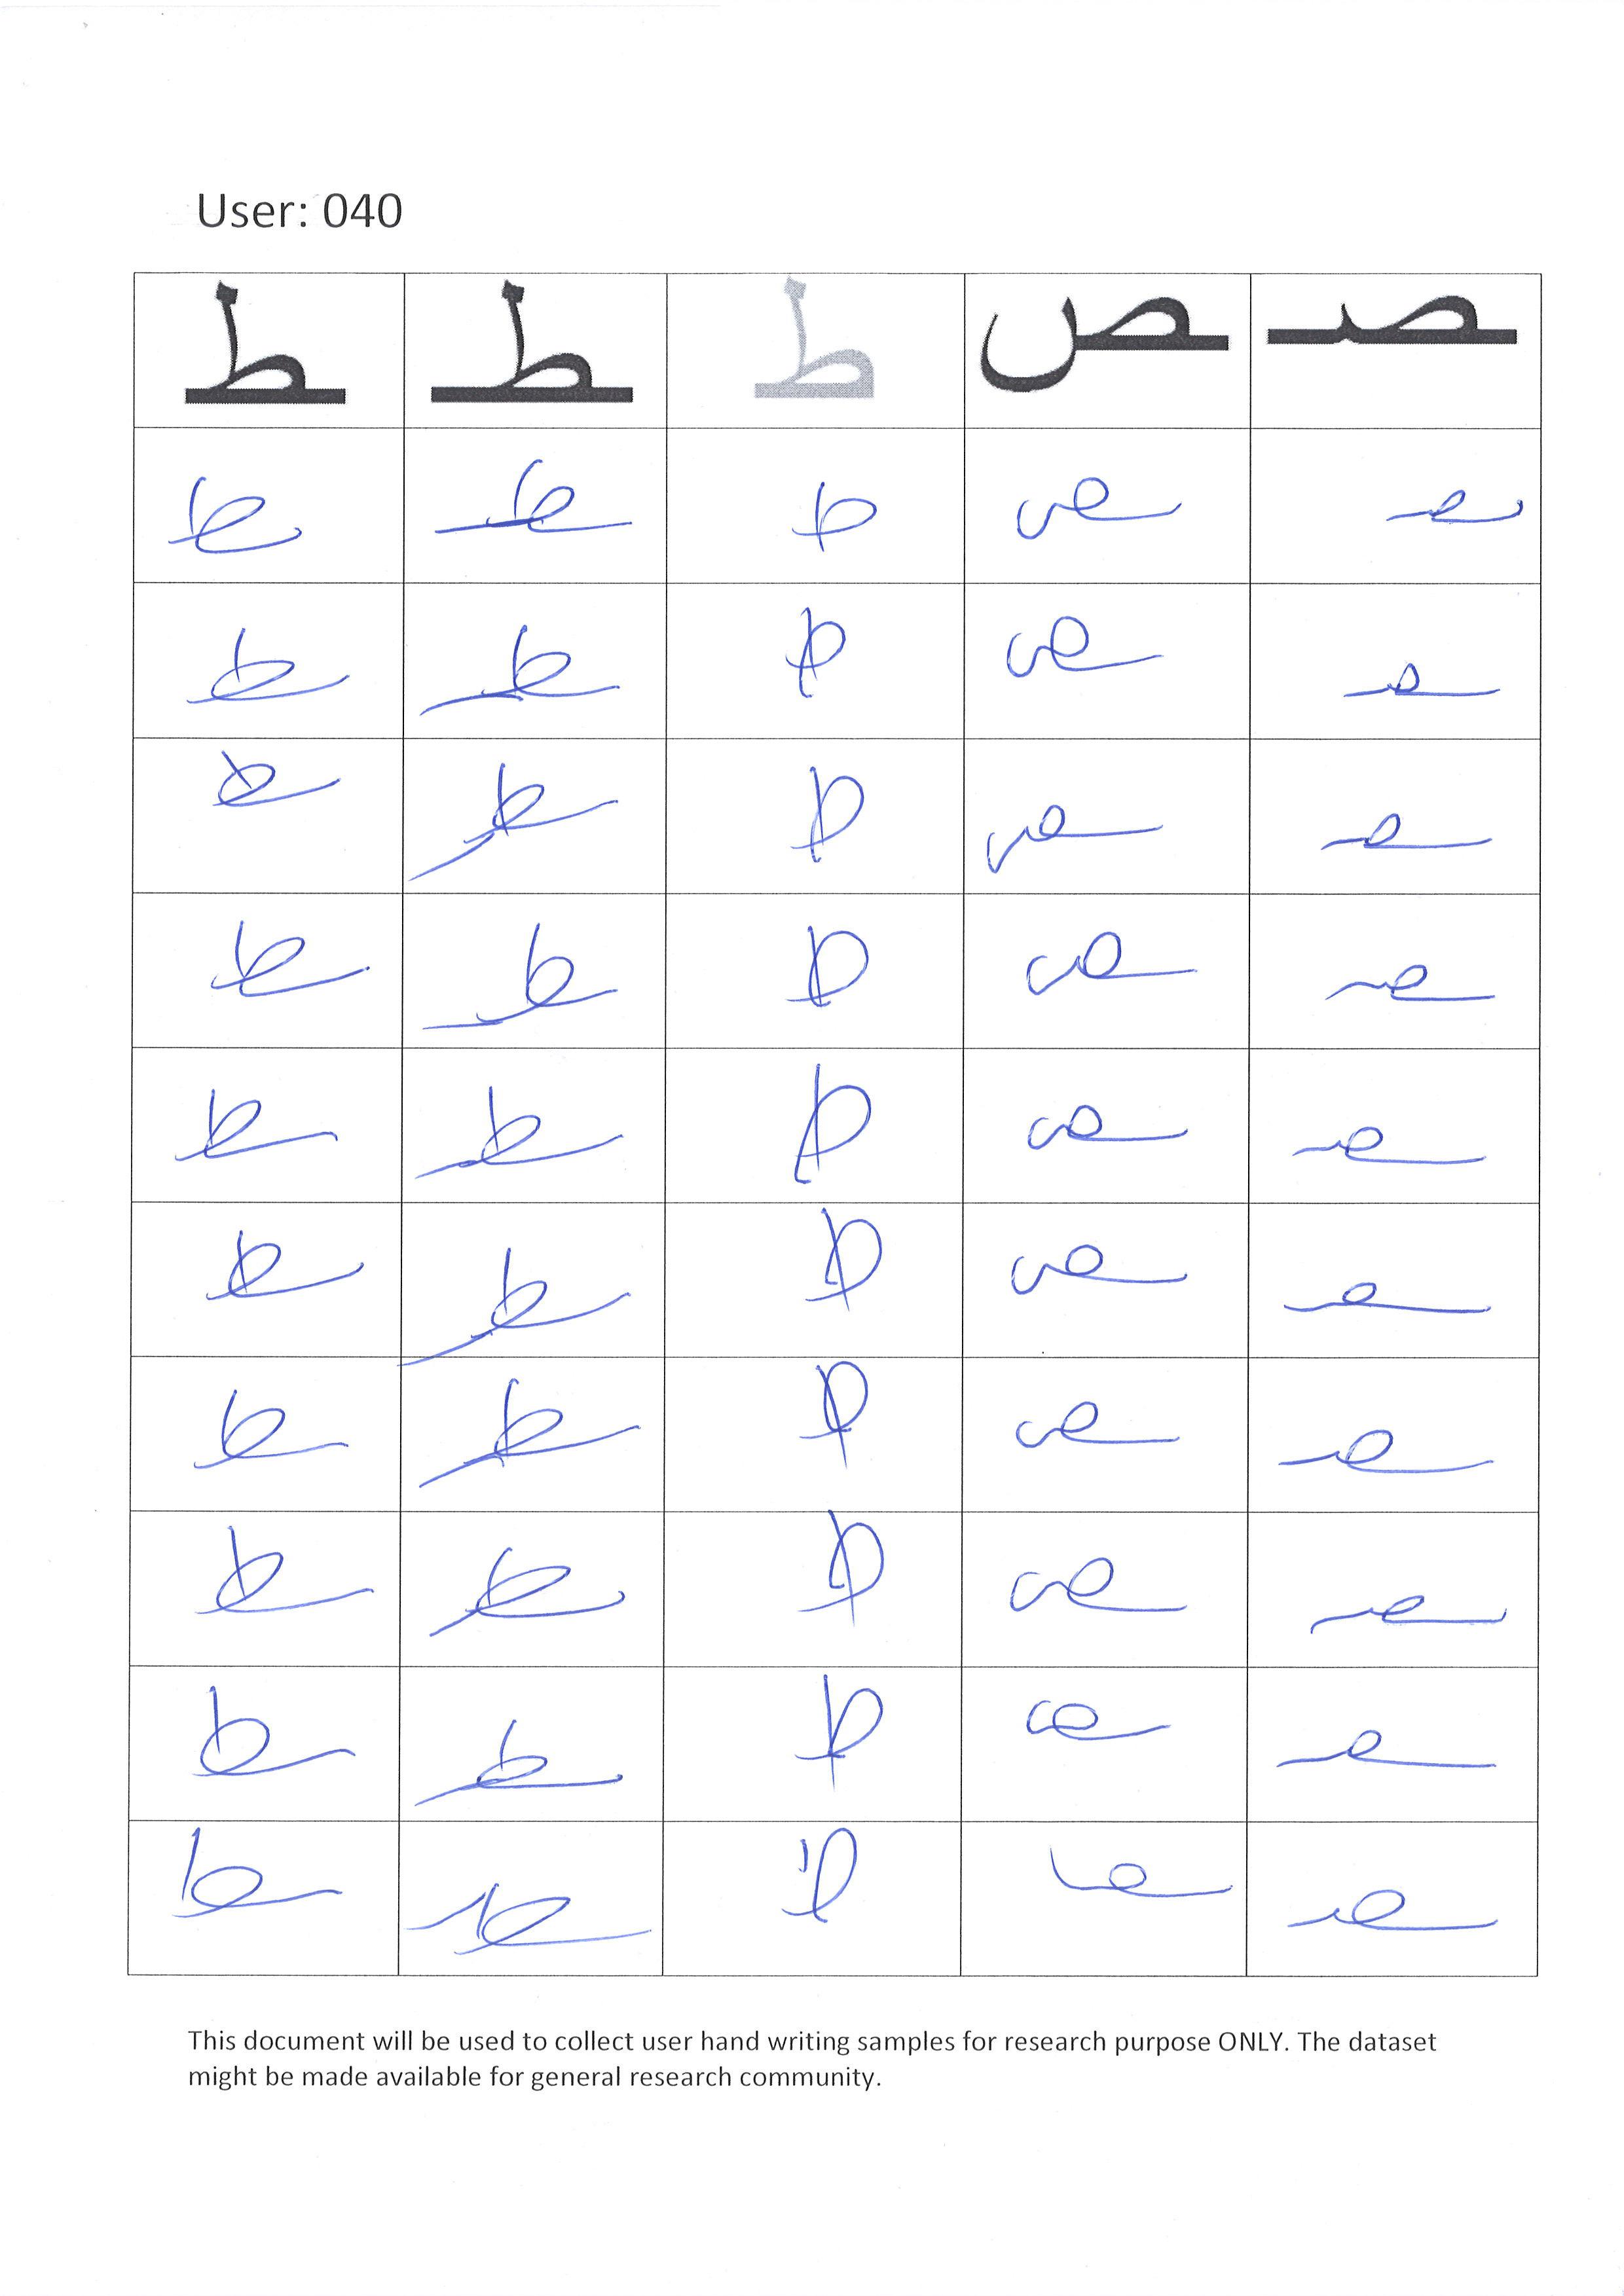 User: 040
ـط ـطـ ط ـص ـصـ
ـط ـطـ ط ـص ـصـ
ـط ـطـ ط ـص ـصـ
ـط ـطـ ط ـص ـصـ
ـط ـطـ ط ـص ـصـ
ـط ـطـ ط ـص ـصـ
ـط ـطـ ط ـص ـصـ
ـط ـطـ ط ـص ـصـ
ـط ـطـ ط ـص ـصـ
ـط ـطـ ط ـص ـصـ
ـط ـطـ ط ـص ـصـ
This document will be used to collect user hand writing samples for research purpose ONLY. The dataset
might be made available for general research community.